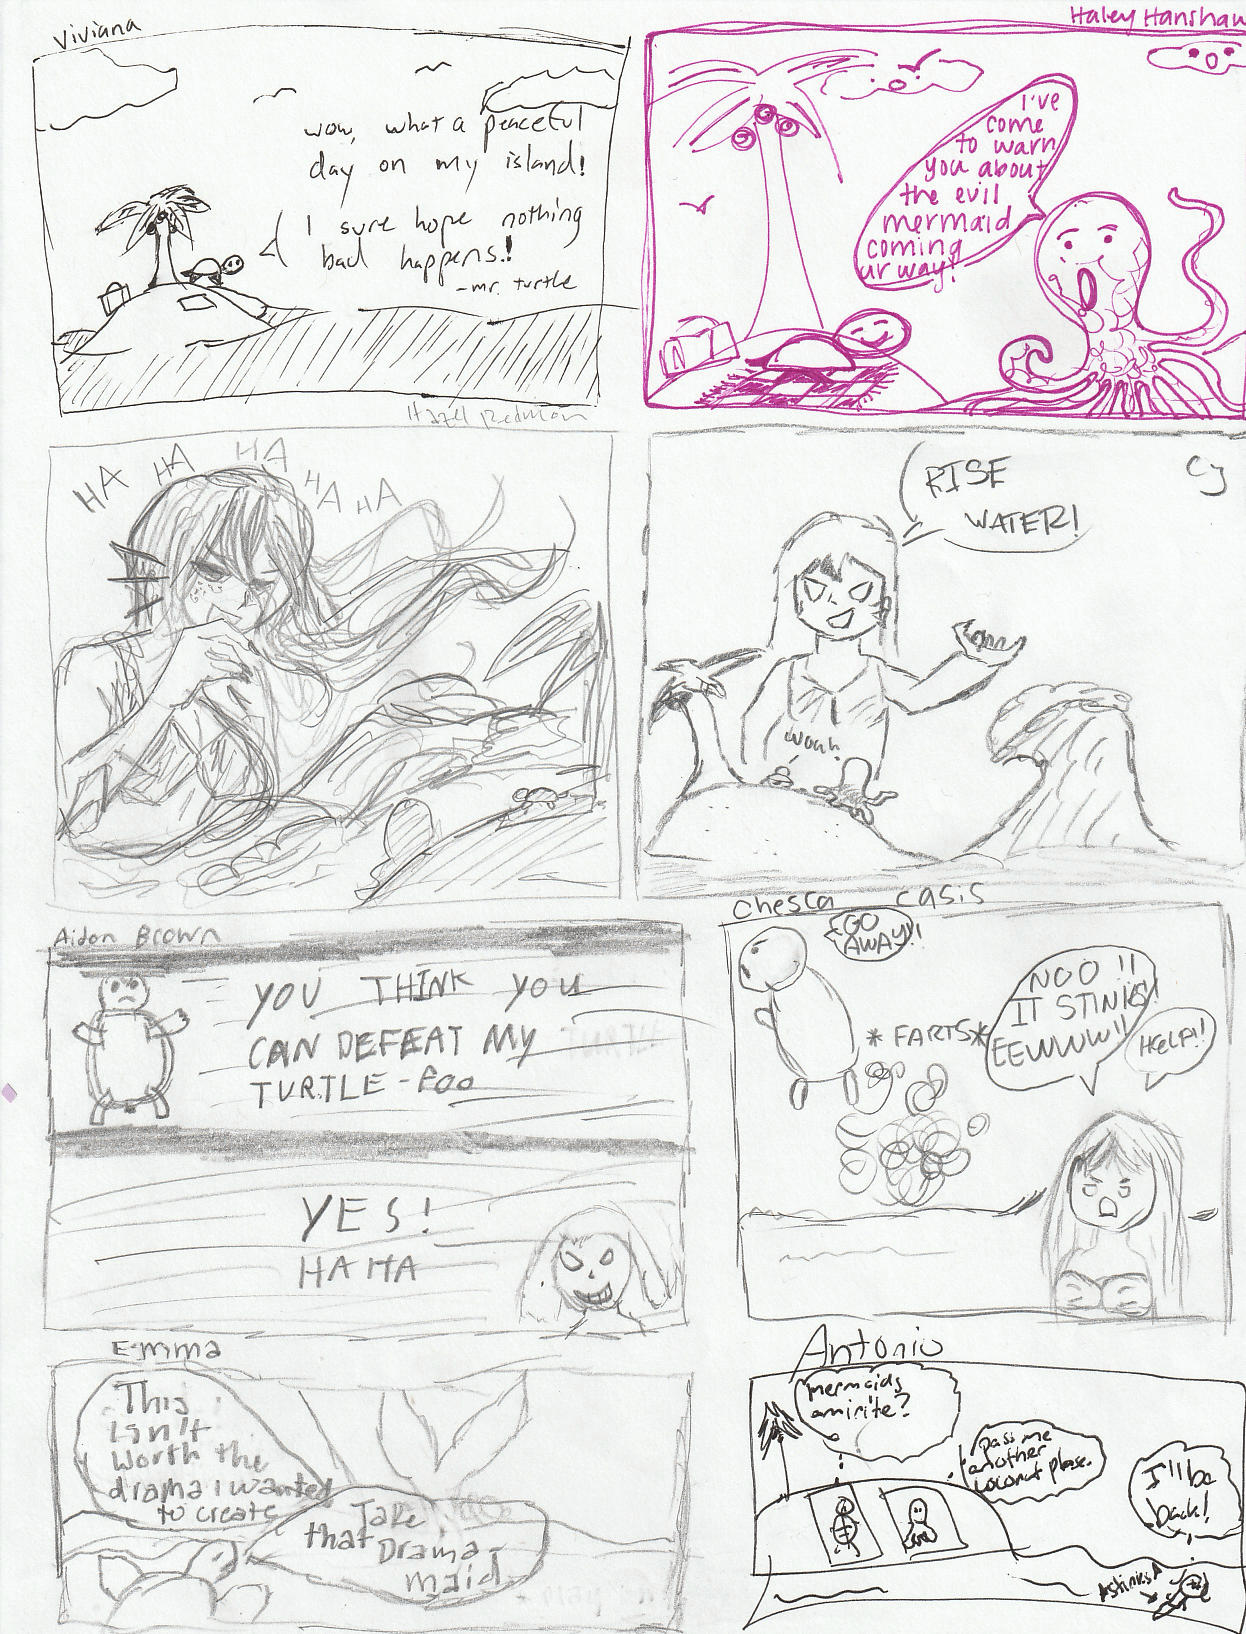 Viviana
wow, what a peaceful
day on my island!
I sure hope nothing
bad happens!
-mr. turtle
Haley Hanshaw
I've
come
to warn
you about
the evil
mermaid
coming
ur way!
Hazel Redmon
HA HA HA HA HA
Cy
RISE
WATER!
woah
Aidan Brown
YOU THINK YOU
CAN DEFEAT MY
TURTLE-FOO
YES!
HA HA
Chesca Casis
GO
AWAY!!
* FARTS *
NOO!!
IT STINKS!
EEWWW!!
HELP!!
Emma
This
isn't
worth the
drama i wanted
to create
Take
that Drama-
maid
Antonio
mermaids
amirite?
pass me
another
coconut please.
I'll be
back!